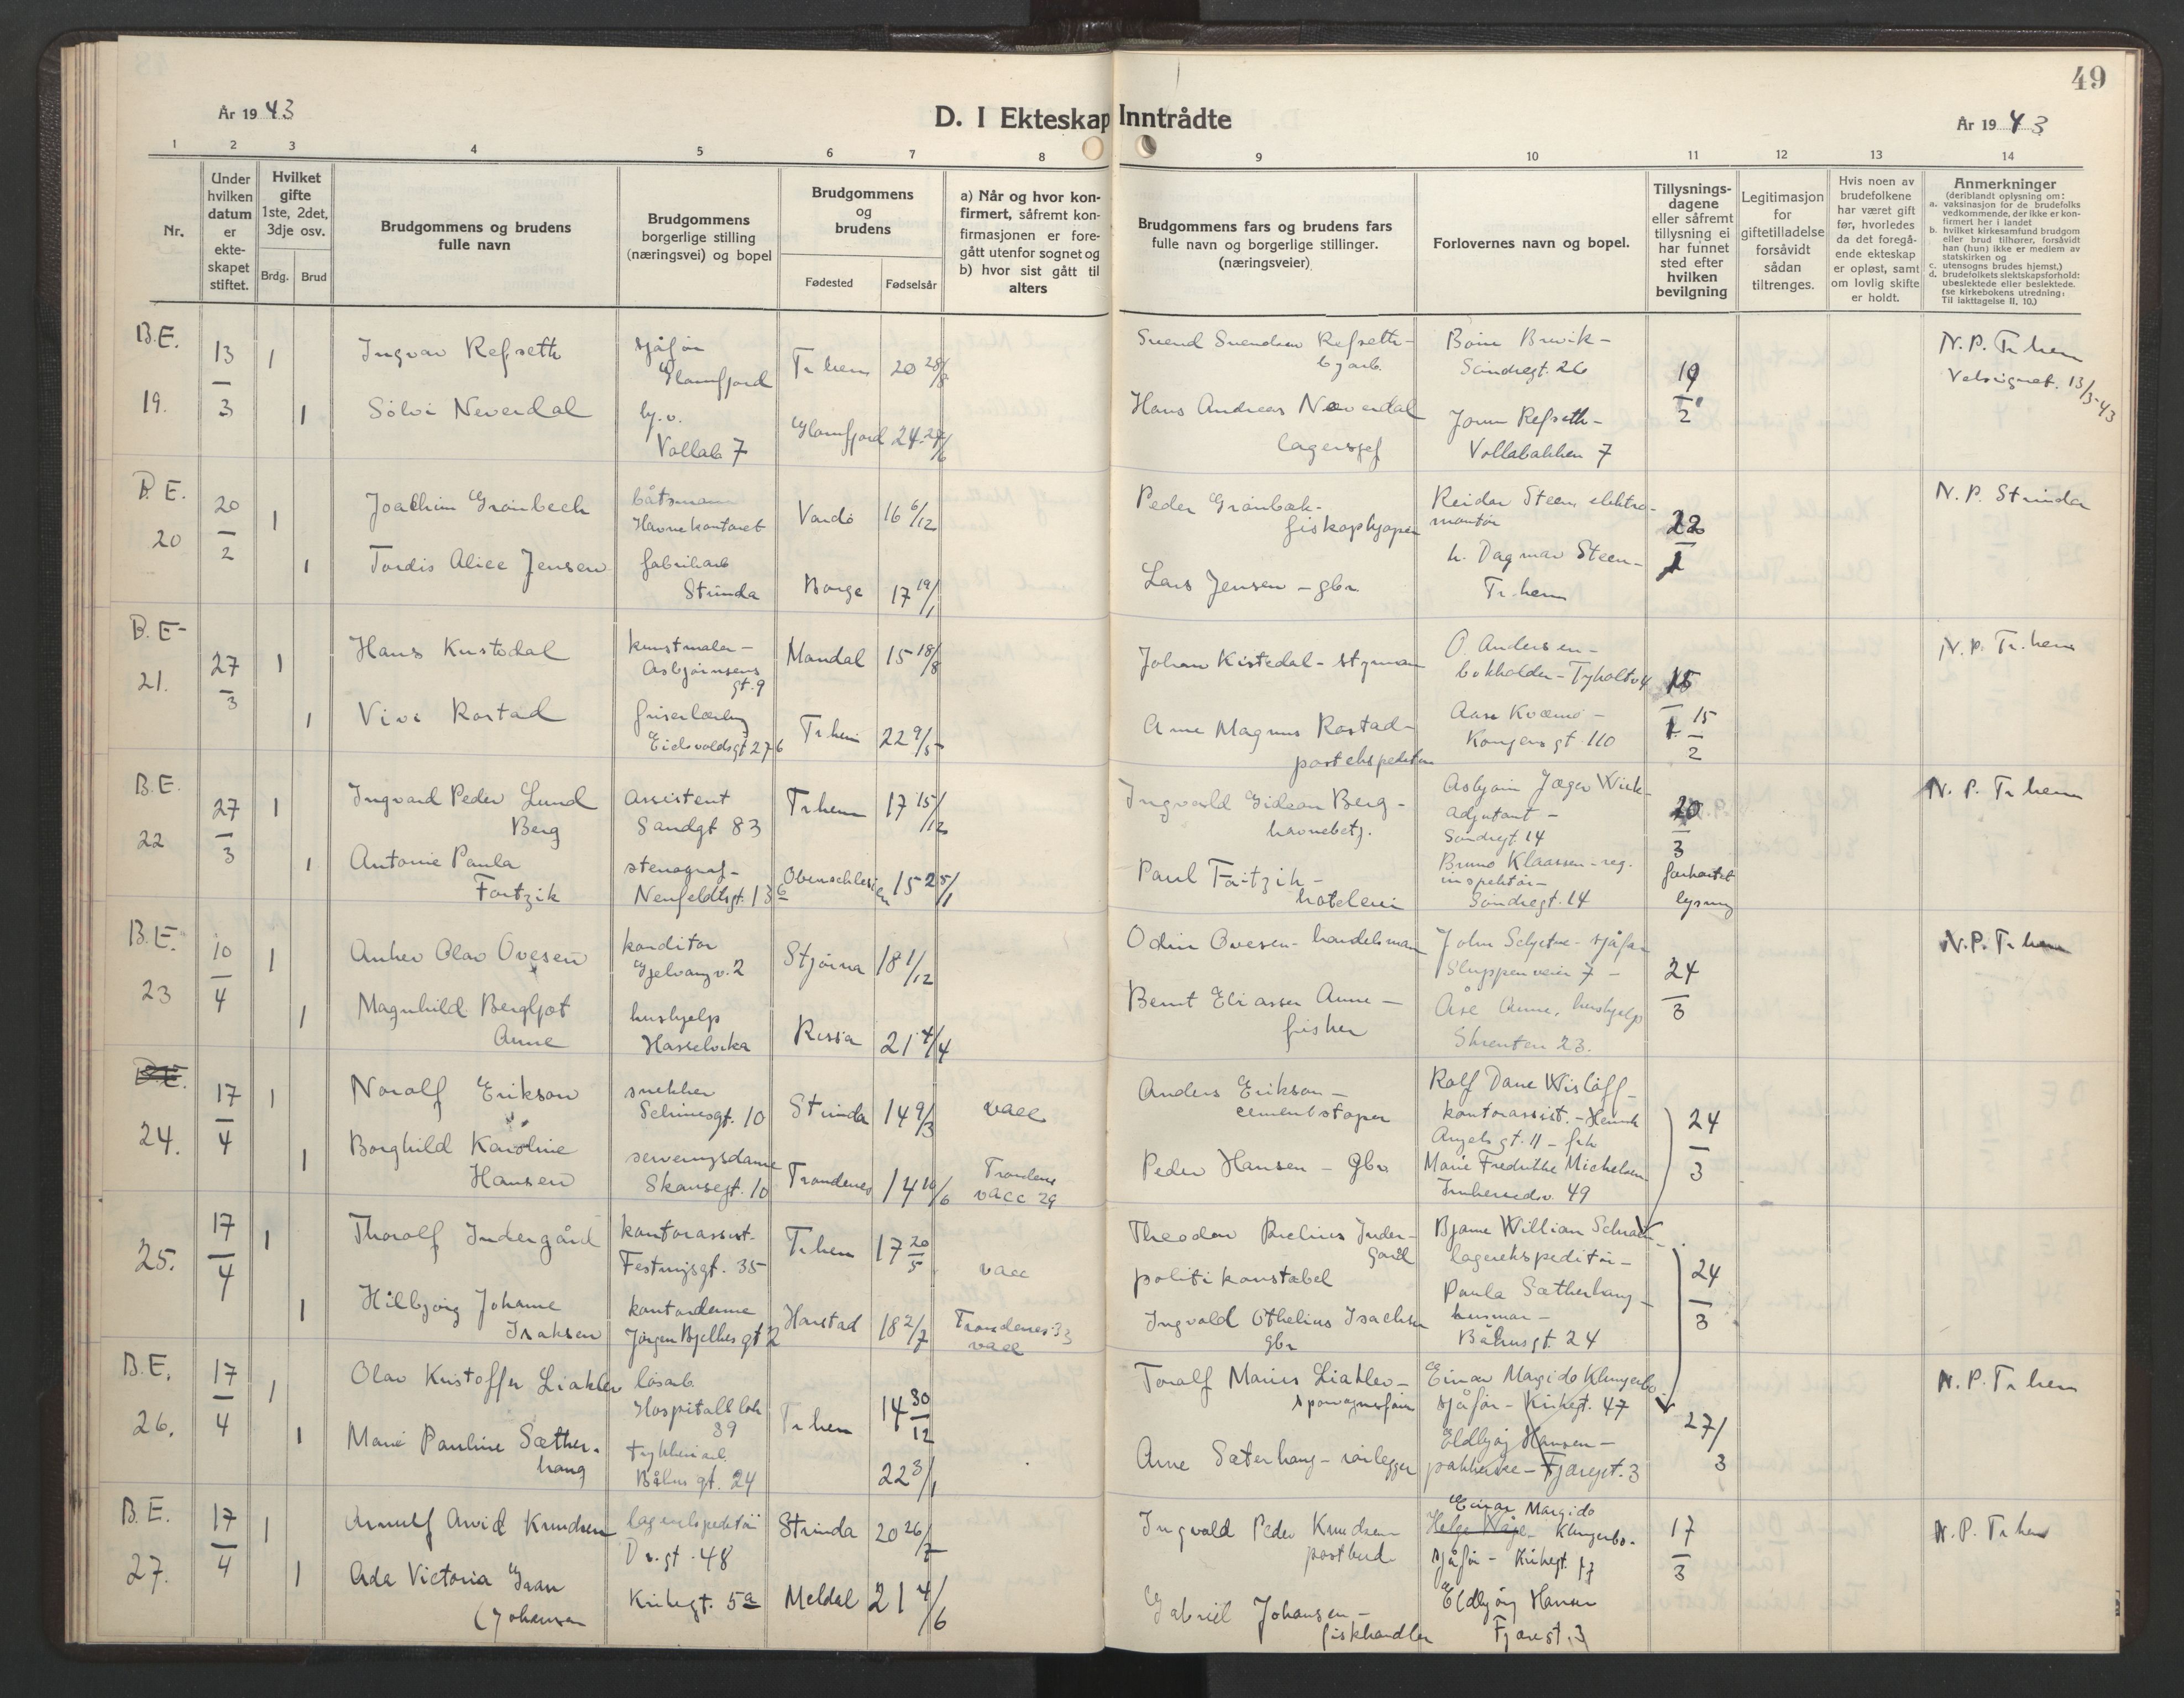 49
År 1943
D. I Ekteskap Inntrådte
År 1943
1 2 3 4 5 6 7 8 9 10 11 12 13 14
Nr.
Under hvilken datum er ekte-skapet stiftet.
Hvilket gifte 1ste, 2det, 3dje osv.
Brdg. Brud
Brudgommens og brudens fulle navn
Brudgommens borgerlige stilling (næringsvei) og bopel
Brudgommens og brudens
Fødested Fødselsår
a) Når og hvor kon-firmert, såfremt kon-firmasjonen er fore-gått utenfor sognet og b) hvor sist gått til alters
Brudgommens fars og brudens fars fulle navn og borgerlige stillinger. (næringsveier)
Forlovernes navn og bopel.
Tillysnings-dagene eller såfremt tillysning ei har funnet sted efter hvilken bevilgning
Legitimasjon for giftetilladelse forsåvidt sådan tiltrenges.
Hvis noen av brudefolkene har været gift før, hvorledes da det foregå-ende ekteskap er opløst, samt om lovlig skifte er holdt.
Anmerkninger
(deriblandt oplysning om:
a. vaksinasjon for de brudefolks vedkommende, der ikke er kon-firmert her i landet
b. hvilket kirkesamfund brudgom eller brud tilhører, forsåvidt han (hun) ikke er medlem av statskirken og
c. utensogns brudes hjemst.)
d. brudefolkets slektskapsforhold: ubeslektede eller beslektede.
(se kirkebokens utredning: Til iakttagelse II, 10.)
B.E. 19. 13/3 1 Ingvar Refseth sjåfør Glomfjord Tr.hem 20 28/8
Svend Svendsen Refseth - bjarb. Sondregt. 26 19/2 N.P. Tr.hem
Velsignet. 13/3-43
1 Sölvi Neverdal Vollab 7 Glomfjord 24
Hans Andreas Neverdal lagersjef Refseth - Vollabakken 7
B.E. 20 20/2 1 Joachim Grønbech båtsmann Havnekontoret Vardö 16 6/12
Peder Grönbæk - fiskopkjøper Reidar Steen, elektro-montör 22 N.P. Strinda
1 Tordis Alice Jensen fabrikarb Strinda Borge 17 19/1
Lars Jensen - gbr. Dagmar Steen - Tr.hem
B.E. 21. 27/3 1 Hans kunstmaler - Asbjørnsens gt. 9 Mandal 15 18/8
Johan Kistedal - styrmann O. Andersen - bokholder - N.P. Tr.hem
1 Vivi Rostad Eidsvoldsgt 27b Tr.hem 22 9/5
Arne Magnus Rostad - postekspeditør Aase - Kongens gt 110 15/2
B.E. 22 27/3 1 Ingvard Peder Lund Berg Assistent Sandgt 83 Tr.hem 17 15/12
Ingvald Gideon Berg - havnebetj. Asbjørn Jæger Wiik - adjutant - Söndregt. 14 20/3 N.P. Tr.hem
1 Antonie Paula stenograf - Oberschlesien 15 25/1
Paul - hoteleier Bruno Klaassen - reg. inspektör - Söndregt. 14 forkortet lysning
B.E. 23 10/4 1 Anker Olav Ovesen konditor Gjelvangv. 2 Stjørna 18 1/12
Odin Ovesen - handelsmann John - sjåfør Sluppenveien 7 - 24/3 N.P. Tr.hem
1 Magnhild Bergljot Aune hushjelp Hasselvika Rissa 21 4/4
Bernt Eliassen Aune - fisker Åse Aune, hushjelp Skrenten 23.
24. 17/4 1 Noralf Erikson snekker Strinda 14 9/3 vacc
Anders Erikson - cementstøper Rolf Dane Wisløff - kontorassist. - Henrik Angels gt. 11 - frk 24/3
1 Borghild Karoline Hansen serveringsdame Skansegt. 10 Trondenes 14 Trondenes vacc 29
Peder Hansen - Gbr. Marie Fredrikke Michelsen Innherredsv. 49
25. 17/4 1 Thoralf Indergård kontorassist. Festningsgt. 35 Tr.hem 17 20/5 vacc
Theodor Indergård politikonstabel Bjarne William lagerekspeditör - 24/3
1 Hilbjørg Johanne Isaksen kontordame Jørgen Bjelkes gt Harstad 18 2/7 Trondenes 33 vacc
Ingvald Othelius Isachsen gbr Paula Sætherhaug - husmor - Båhusgt. 24
B.E. 26. 17/4 1 Olav Kristoffer Liaklev løsarb. Hospitalsløk 39 Tr.hem 14 30/12
Toralf Marius Liaklev - sporvognsfører Einar Margido Klungerbo - sjåför - Kirkegt. 47 27/3 N.P. Tr.hem
1 Marie Pauline Sætherhaug trykkeriarb. Båhus gt. 24 22 3/1
Arne Sæterhaug - rørlegger Eldbjørg Hansen - pakkerske - Fjæregt. 3
B.E. 27. 17/4 1 Arnulf Arvid Knudsen lagerekspeditör Dr.gt. 48 Strinda 20 26/7
Ingvald Peder Knudsen postbud Einar Margido Klungerbo - sjåfør - Kirkegt. 17/3 N.P. Tr.hem
1 Ada Victoria Johansen Kirkegt. 5a Meldal 21 4/6
Gabriel Johansen - fiskhandler Eldbjörg Hansen Fjæregt. 3